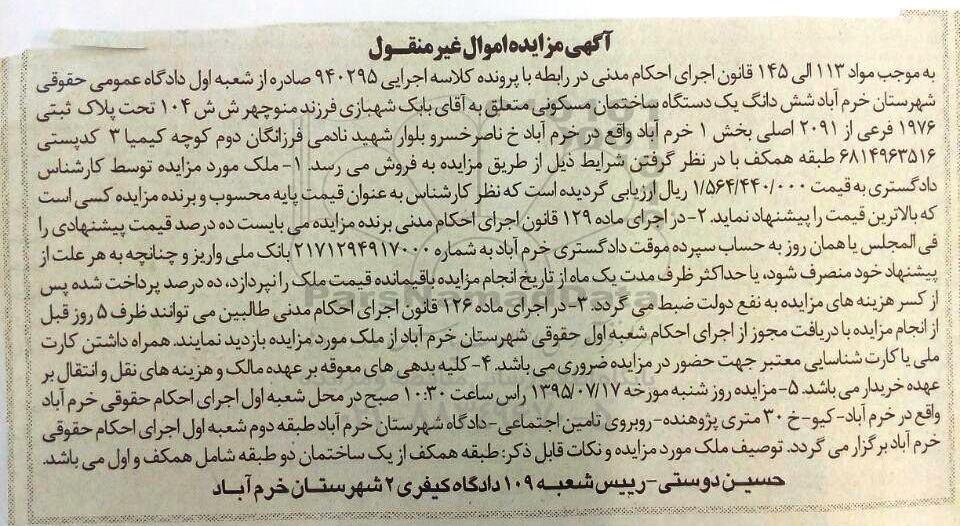 آگهی مزایده اموال غیر منقول
به موجب مواد ۱۱۳ الی ۱۴۵ قانون اجرای احکام مدنی در رابطه با پرونده کلاسه اجرایی ۹۴۰۲۹۵ صادره از شعبه اول دادگاه عمومی حقوقی
شهرستان خرم آباد شش دانگ یک دستگاه ساختمان مسکونی متعلق به آقای بابک شهبازی فرزند منوچهر ش ش ۱۰۴ تحت پلاک ثبتی
۱۹۷۶ فرعی از ۲۰۹۱ اصلی بخش ۱ خرم آباد واقع در خرم آباد خ ناصرخسرو بلوار شهید نادمی فرزانگان دوم کوچه کیمیا ۳ کدپستی
۶۸۱۴۹۶۳۵۱۶ طبقه همکف با در نظر گرفتن شرایط ذیل از طریق مزایده به فروش می رسد. ۱- ملک مورد مزایده توسط کارشناس
دادگستری به قیمت ۱/۵۶۴/۴۴۰/۰۰۰ ریال ارزیابی گردیده است که نظر کارشناس به عنوان قیمت پایه محسوب و برنده مزایده کسی است
که بالاترین قیمت را پیشنهاد نماید. ۲- در اجرای ماده ۱۲۹ قانون اجرای احکام مدنی برنده مزایده می بایست ده درصد قیمت پیشنهادی را
فی المجلس یا همان روز به حساب سپرده موقت دادگستری خرم آباد به شماره ۲۱۷۱۲۹۴۹۱۷۰۰۰ بانک ملی واریز و چنانچه به هر علت از
پیشنهاد خود منصرف شود، یا حداکثر ظرف مدت یک ماه از تاریخ انجام مزایده باقیمانده قیمت ملک را نپردازد، ده درصد پرداخت شده پس
از کسر هزینه های مزایده به نفع دولت ضبط می گردد. ۳- در اجرای ماده ۱۲۶ قانون اجرای احکام مدنی طالبین می توانند ظرف ۵ روز قبل
از انجام مزایده با دریافت مجوز از اجرای احکام شعبه اول حقوقی شهرستان خرم آباد از ملک مورد مزایده بازدید نمایند. همراه داشتن کارت
ملی یا کارت شناسایی معتبر جهت حضور در مزایده ضروری می باشد. ۴- کلیه بدهی های معوقه بر عهده مالک و هزینه های نقل و انتقال بر
عهده خریدار می باشد. ۵- مزایده روز شنبه مورخه ۱۳۹۵/۰۷/۱۷ راس ساعت ۱۰:۳۰ صبح در محل شعبه اول اجرای احکام حقوقی خرم آباد
واقع در خرم آباد- کیو- خ ۳۰ متری پژوهنده- روبروی تامین اجتماعی- دادگاه شهرستان خرم آباد طبقه دوم شعبه اول اجرای احکام حقوقی
خرم آباد برگزار می گردد. توصیف ملک مورد مزایده و نکات قابل ذکر: طبقه همکف از یک ساختمان دو طبقه شامل همکف و اول می باشد.
حسین دوستی- رییس شعبه ۱۰۹ دادگاه کیفری ۲ شهرستان خرم آباد